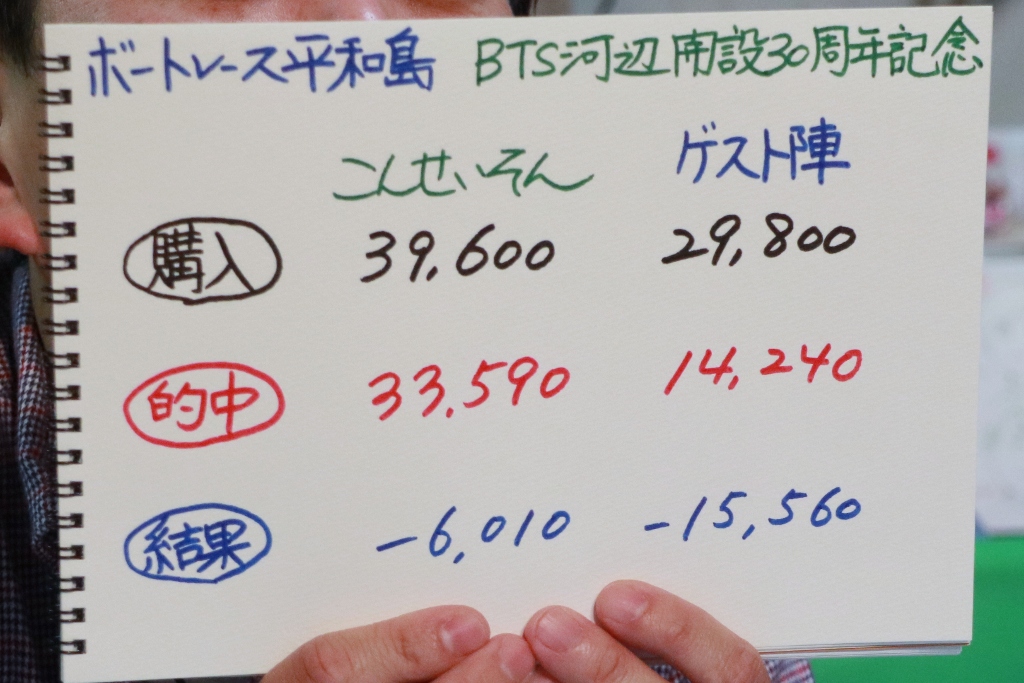 ボートレース平和島 BTS河辺開設30周年記念
こんせいそん ゲスト陣
購入 39,600 29,800
的中 33,590 14,240
結果 -6,010 -15,560